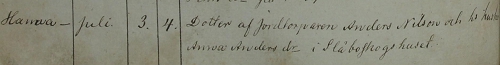 Hanna – juli. 3. 4. Dotter af Jordtorparen Anders Nilson och hs hustru
Anna Andersdr i Slåboskogshuset.